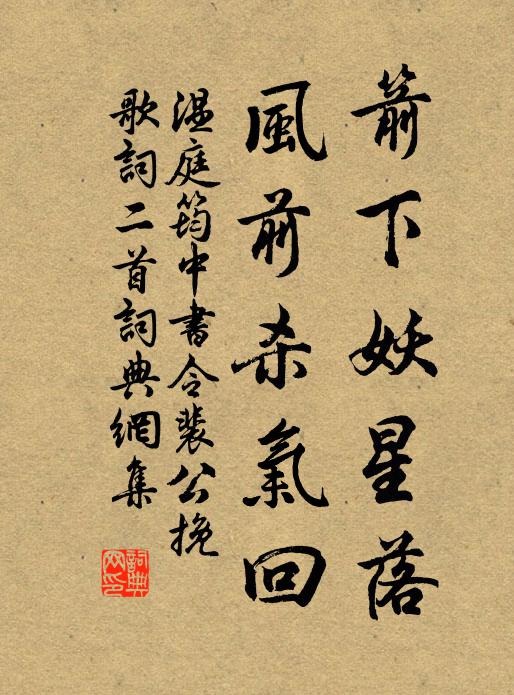 箭下妖星落
風前杀氣回
温庭筠中書令裴公挽
歌詞二首詞典網集
詞典网印